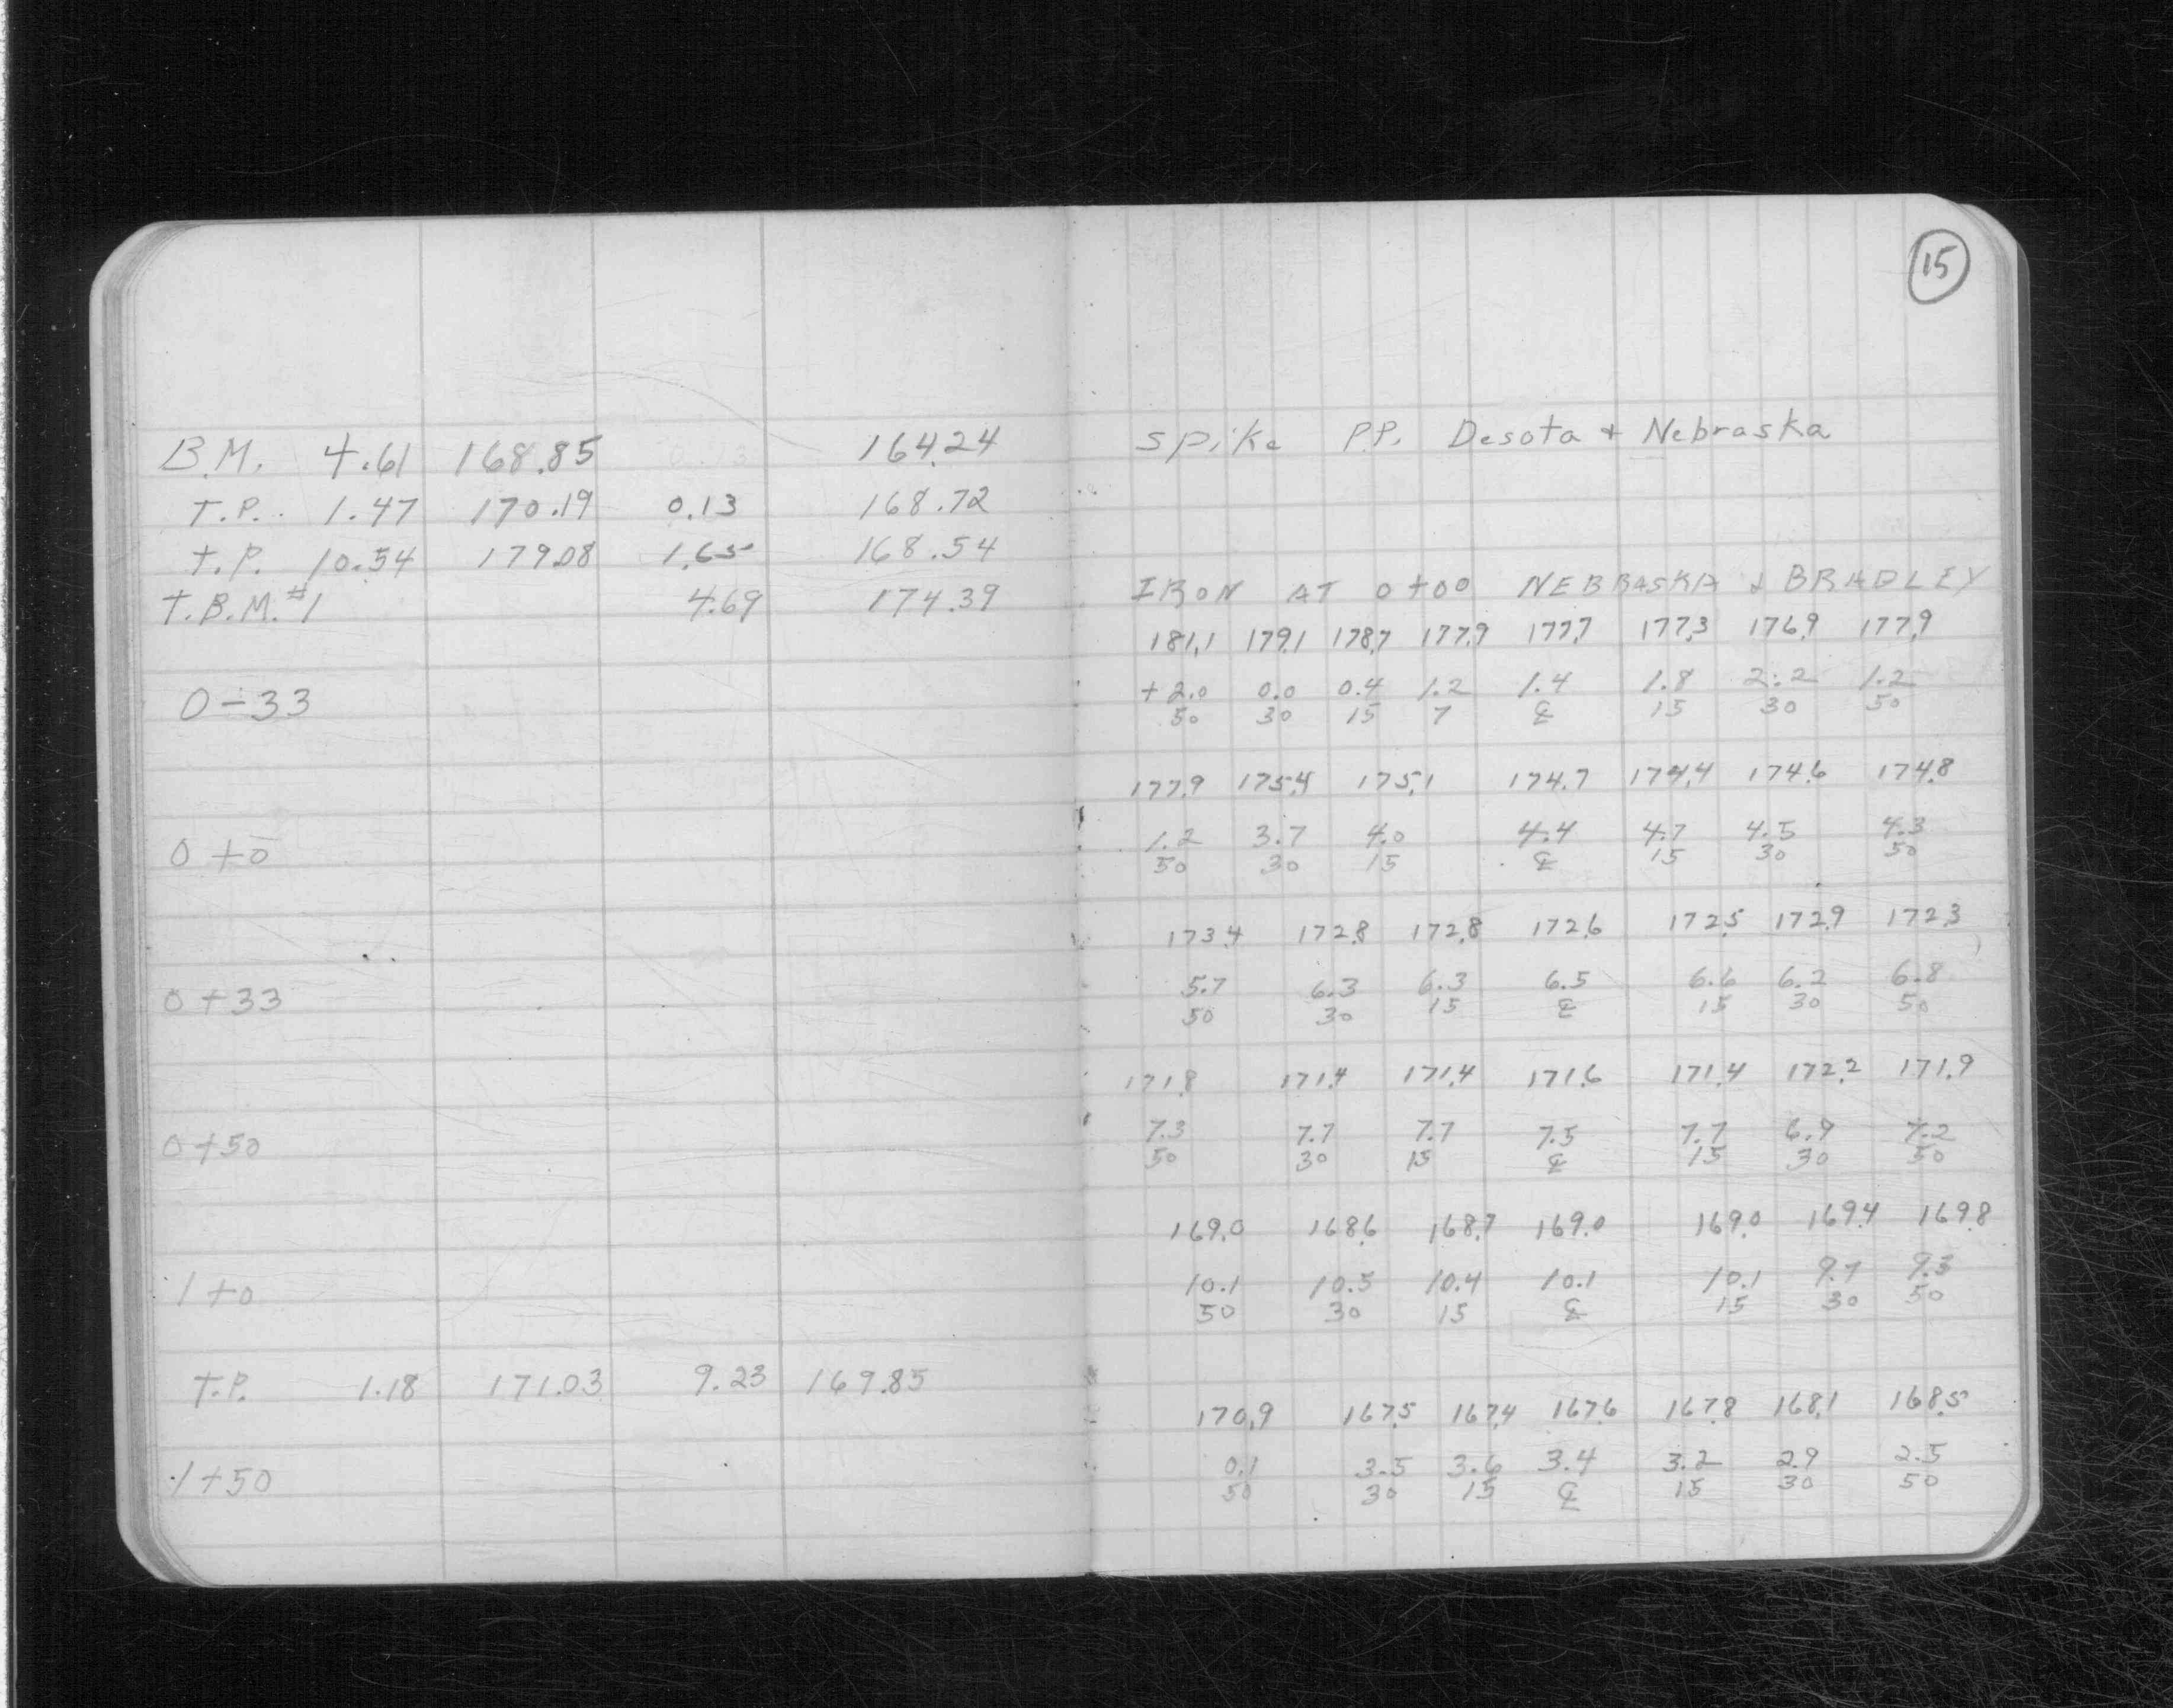 15
B.M. 4.61 168.85 164.24 Spike P.P. Desota + Nebraska
T.P. 1.47 170.19 0.13 168.72
T.P. 10.54 179.08 1.65 168.54
T.B.M. #1 4.69 174.39 IRON AT 0+00 NEBRASKA & BRADLEY
181.1 179.1 178.7 177.9 177.7 177.3 176.9 177.9
0-33 +2.0 0.0 0.4 1.2 1.4 1.8 2.2 1.2
50 30 15 7 ℄ 15 30 50
177.9 175.4 175.1 174.7 174.4 174.6 174.8
0+0 1.2 3.7 4.0 4.4 4.7 4.5 4.3
50 30 15 ℄ 15 30 50
173.4 172.8 172.8 172.6 172.5 172.9 172.3
0+33 5.7 6.3 6.3 6.5 6.6 6.2 6.8
50 30 15 ℄ 15 30 50
171.8 171.4 171.4 171.6 171.4 172.2 171.9
0+50 7.3 7.7 7.7 7.5 7.7 6.9 7.2
50 30 15 ℄ 15 30 50
169.0 168.6 168.7 169.0 169.0 169.4 169.8
1+0 10.1 10.5 10.4 10.1 10.1 9.7 9.3
50 30 15 ℄ 15 30 50
T.P. 1.18 171.03 9.23 169.85
170.9 167.5 167.4 167.6 167.8 168.1 168.5
1+50 0.1 3.5 3.6 3.4 3.2 2.9 2.5
50 30 15 ℄ 15 30 50